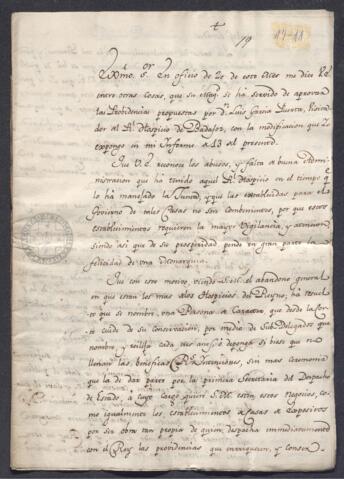 19
17-11
Exmo. Sor. En oficio de 20 de este Mes me dice V.E.
entre otras cosas, que su Mag. se ha servido de aprovar
las Providencias propuestas por Dn. Luis Garcia Puerta,
dor al Rl. Hospicio de Badajoz, con la modificacion que
expongo en mi Informe a 13 del presente.
Que V.E. reconoce los abusos, y falta a buena Admi-
nistracion que ha tenido aquel Rl. Hospicio en el tiempo qe
lo ha manejado la Junta, y que las establecidas para el
Govierno de tales Casas no son convenientes, por que estos
establecimientos requieren la mayor Vigilancia, y atencion
siendo asi que de su prosperidad pende en gran parte la
felicidad de una Monarquia.
Que con este motivo, viendo S.M. el abandono general
en que estan los mas de los Hospicios del Reyno, ha resuel-
to que se nombre una Persona de Caracter que desde la Cor-
te cuide de su Conservacion, por medio de Sub-Delegados que
nombre, y
las beneficas Rs. Intenciones, sin mas ceremonia
que la de dar parte por la primera Secretaria del Despacho
de Estado, a cuyo cargo quiere S.M. esten estos negocios, co-
mo igualmente los establecimientos de Casas de Expositos
por ser obra tan propia de quien despacha immediatamente
con el Rey las providencias que